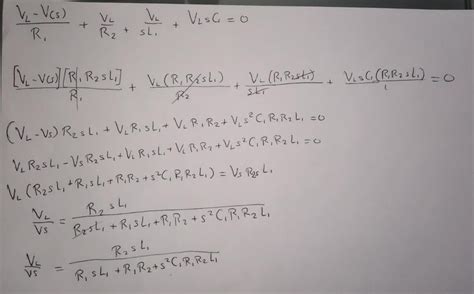 (V_L - V(s))/R_1 + V_L/R_2 + V_L/sL_1 + V_L sC = 0
[V_L - V(s)][R_1 R_2 sL_1]/R_1 + V_L(R_1 R_2 sL_1)/R_2 + V_L(R_1 R_2 sL_1)/sL_1 + V_L sC_1(R_1 R_2 sL_1)/1 = 0
(V_L - V_S) R_2 sL_1 + V_L R_1 sL_1 + V_L R_1 R_2 + V_L s²C_1 R_1 R_2 L_1 = 0
V_L R_2 sL_1 - V_S R_2 sL_1 + V_L R_1 sL_1 + V_L R_1 R_2 + V_L s²C_1 R_1 R_2 L_1 = 0
V_L (R_2 sL_1 + R_1 sL_1 + R_1 R_2 + s²C_1 R_1 R_2 L_1) = V_S R_2 sL_1
V_L/V_S = R_2 sL_1/(R_2 sL_1 + R_1 sL_1 + R_1 R_2 + s²C_1 R_1 R_2 L_1)
V_L/V_S = R_2 sL_1/(R_1 sL_1 + R_1 R_2 + s²C_1 R_1 R_2 L_1)